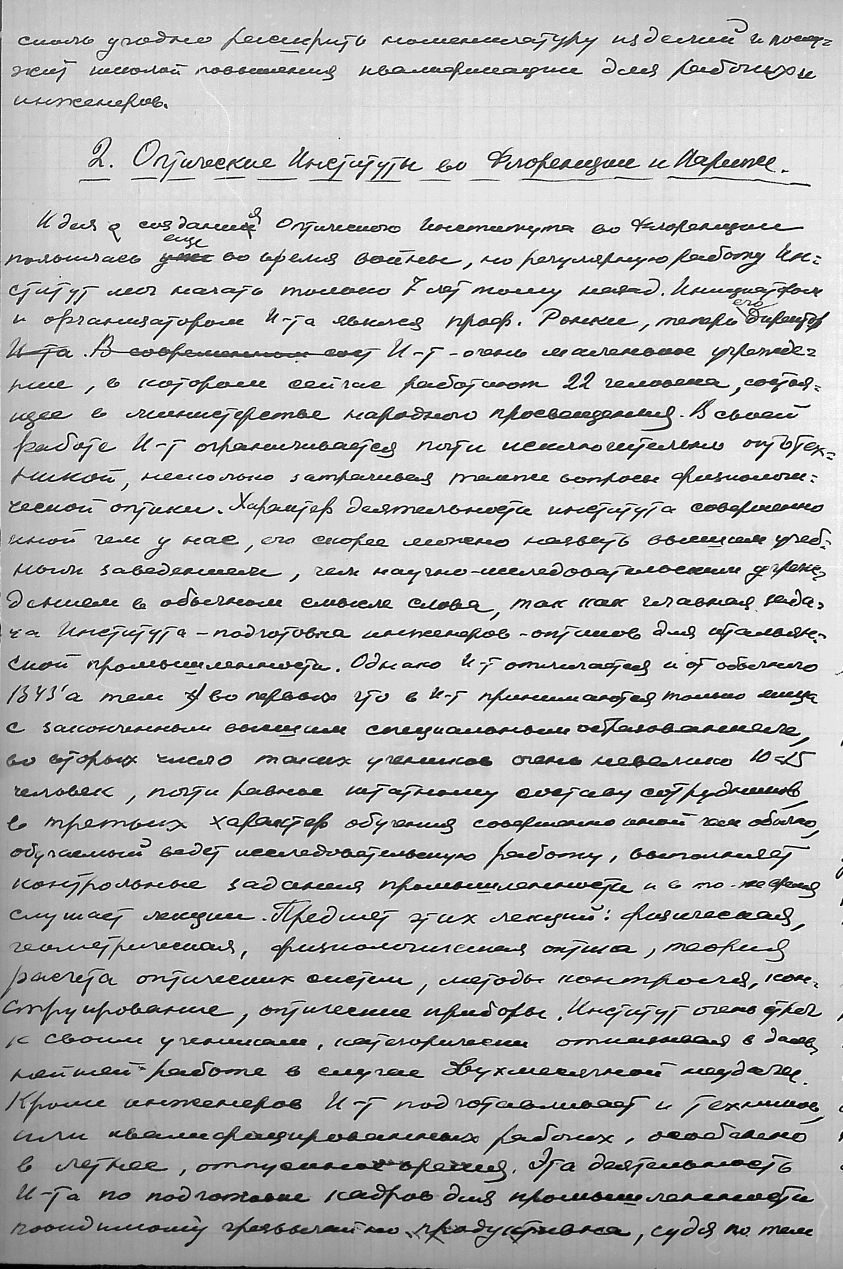 сколь угодно расширить номенклатуру изделий и послу-
жит школой повышения квалификации для рабочих и
инженеров.
2. Оптические Институты во Флоренции и Париже.
Идея о создания Оптического Института во Флоренции
появилась уже еще во время войны, но регулярную работу Ин-
ститут мог начать только 7 лет тому назад. Инициатором
и организатором И-та явился проф. Ронки, теперь его директор
И-та. В современном сост И-т - очень маленькое учрежде-
ние, в котором сейчас работают 22 человека, состоя-
щее в министерстве народного просвещения. В своей
работе И-т ограничивается почти исключительно оптотех-
никой, несколько затрачивая также вопросы физиологи-
ческой оптики. Характер деятельности института совершенно
иной чем у нас, его скорее можно назвать высшим учеб-
ным заведением, чем научно-исследовательским учреж-
дением в обычном смысле слова, так как главная зада-
ча Института - подготовка инженеров-оптиков для итальян-
ской промышленности. Однако И-т отличается и от обычного
ВУЗ'а тем во первых что в И-т принимаются только лица
с законченным высшим специальным образованием,
во вторых число таких учеников очень невелико 10-15
человек, почти равное штатному составу сотрудников,
в третьих характер обучения совершенно иной чем обычно,
обучаемый ведет исследовательскую работу, выполняет
контрольные задания промышленности и в то же время
слушает лекции. Предмет этих лекций: физическая,
геометрическая, физиологическая оптика, теория
расчета оптических систем, методы контроля, кон-
струирование, оптические приборы. Институт очень строг
к своим ученикам, категорически отказывая в даль-
нейшей работе в случае двухмесячной неудачи.
Кроме инженеров И-т подготавливает и техников,
или квалифицированных рабочих, особенно
в летнее, отпускное время. Эта деятельность
И-та по подготовке кадров для промышленности
повидимому чрезвычайно продуктивна, судя по тем